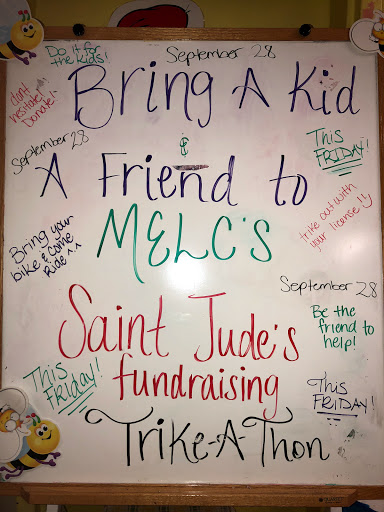 Do it for
the kids!
September 28
don't
hesitate!
Donate!
Bring A Kid
September 28
&
This
FRIDAY!
A Friend to
trike out with
your license!!
MELC'S
Bring your
bike & come
Ride ^^
September 28
Saint Jude's
Be the
friend to
help!
This
Friday!
fundraising
This
FRIDAY!
Trike-A-Thon